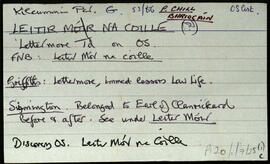 Xilcummin Par. G. 53/86 P. CHILL BHRIOCÁIN OS List
LEITIR MÓIR NA COILLE
'Lettermore Td on OS.
FNB: Leitir Mór na coille
Griffith: Lettermore, immed lessors Law Life.
Simington. Belonged to Earl of Clanrickard
before & after. See under Leitir Móir
Discovery OS. Leitir Mór na coille